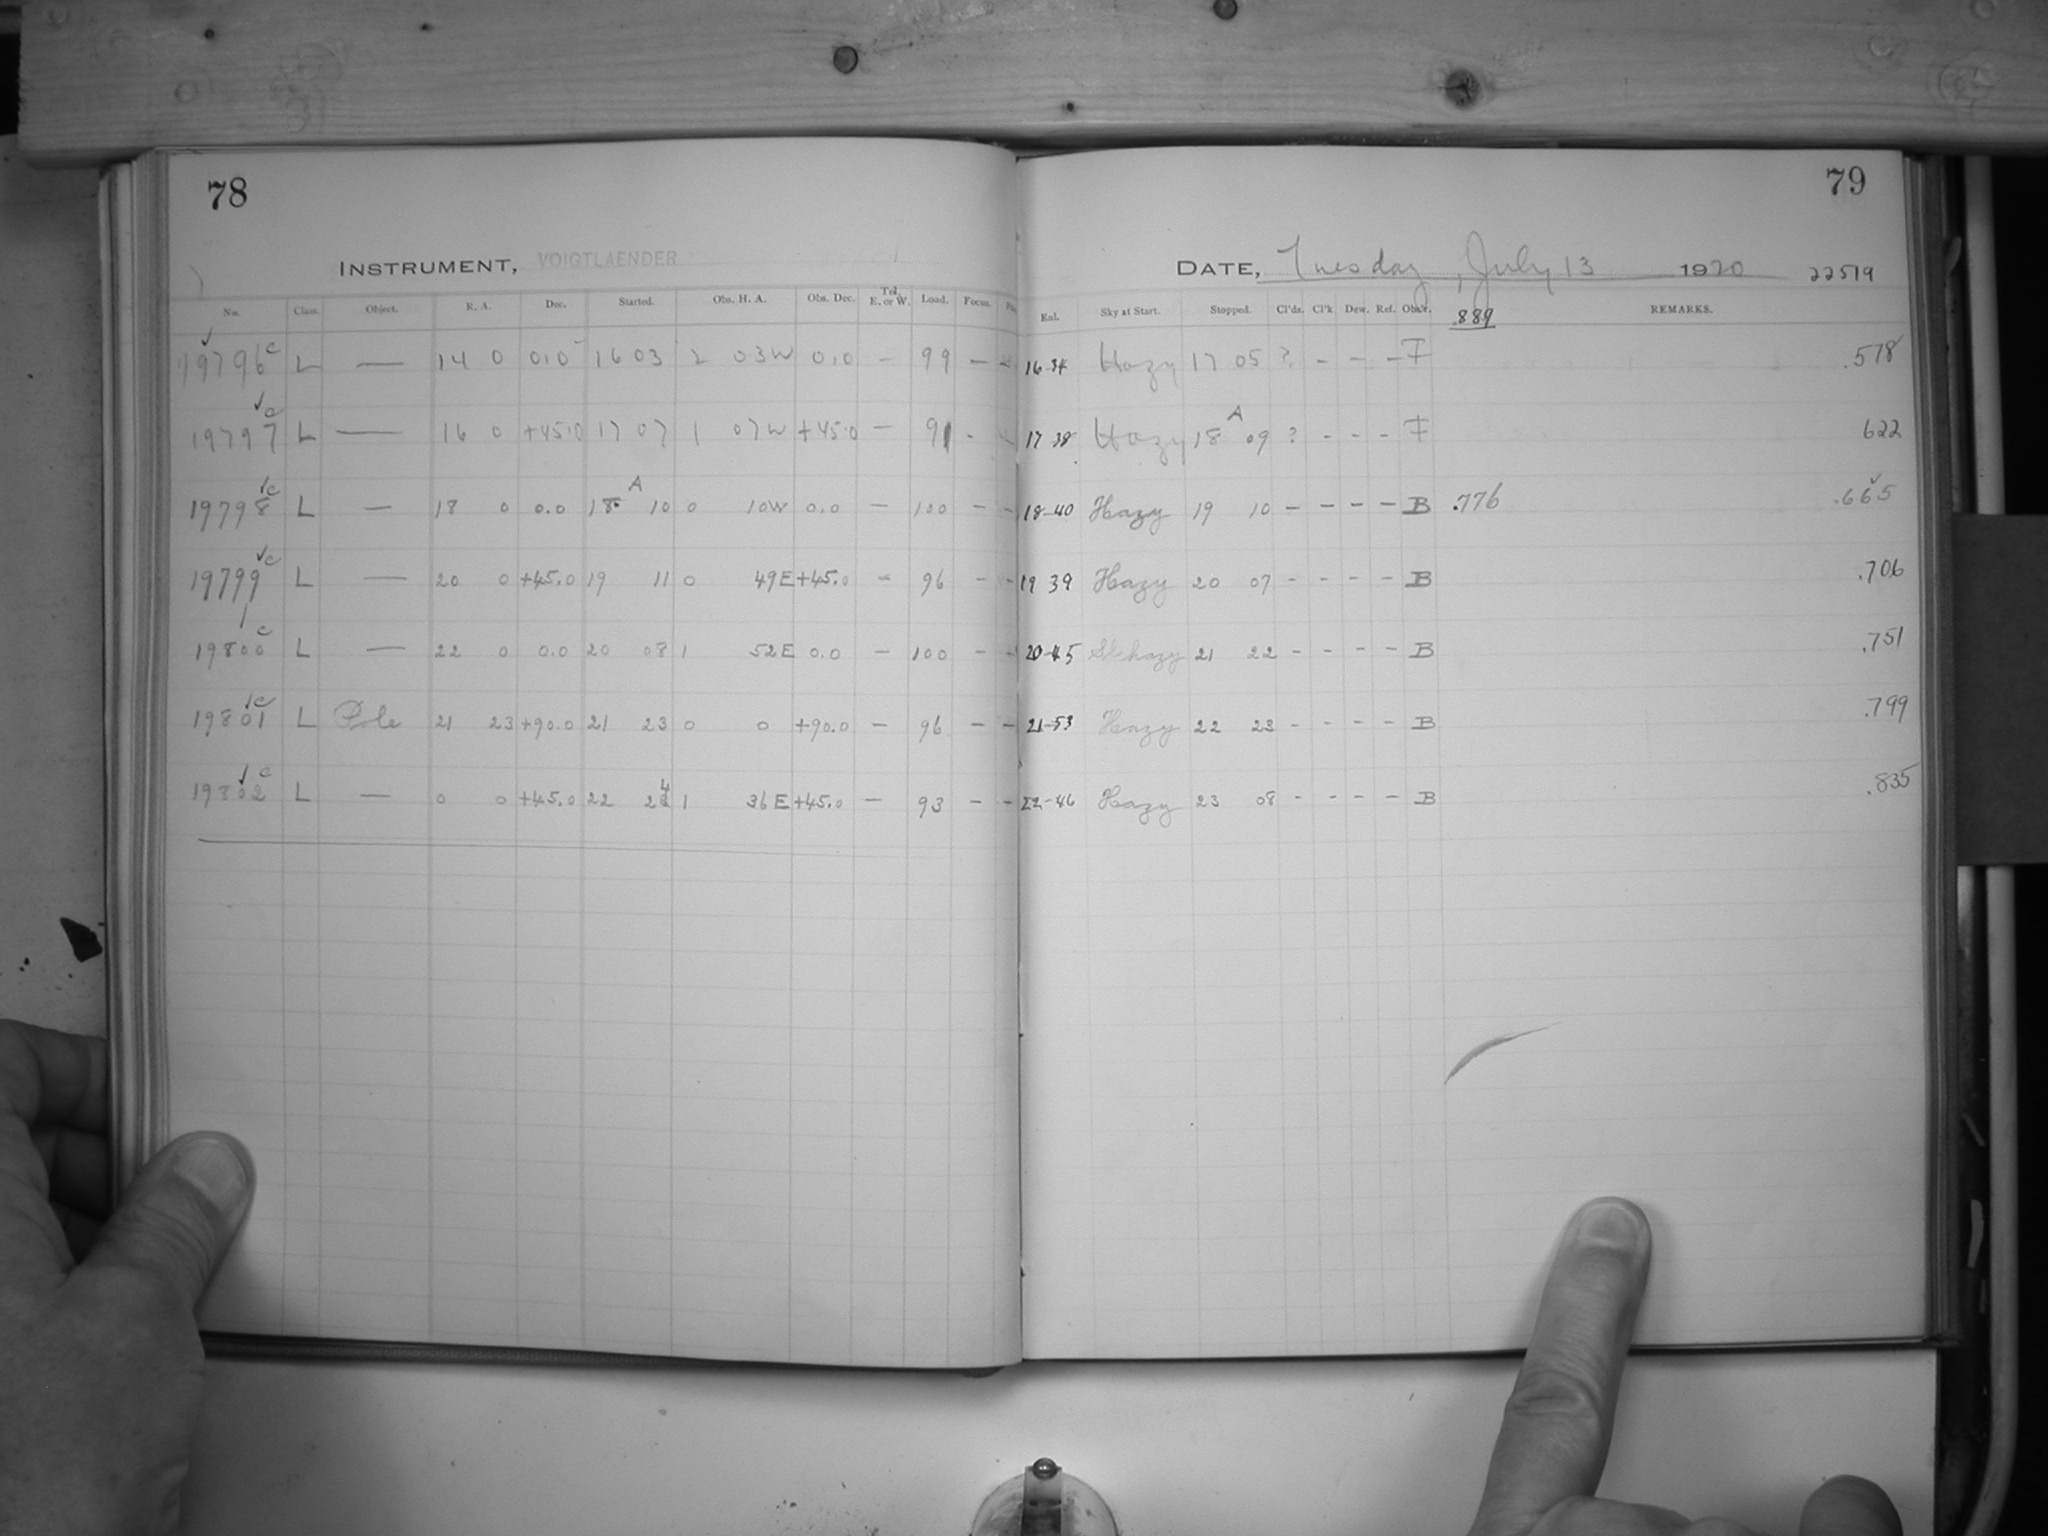 78
INSTRUMENT, VOIGTLAENDER
No. Class. Object. R. A. Dec. Started. Obs. H. A. Obs. Dec. Tel. E. or W. Load. Focus.
19796 c L — 14 0 0.0 16 03 2 03W 0.0 — 99 —
19797 c L — 16 0 +45.0 17 07 1 07W +45.0 — 91 -
19798 c L — 18 0 0.0 18 A 10 0 10W 0.0 — 100 —
19799 c L — 20 0 +45.0 19 11 0 49E +45.0 — 96 —
19800 c L — 22 0 0.0 20 08 1 52E 0.0 — 100 —
19801 c L Pole 21 23 +90.0 21 23 0 0 +90.0 — 96 —
19802 c L — 0 0 +45.0 22 24 1 36E +45.0 — 93 —
79
DATE, Tuesday, July 13 1920 22519
Eal. Sky at Start. Stopped. Cl'ds. Cl'k Dew. Ref. Obs'r. .889 REMARKS.
16-34 Hazy 17 05 ? - - - F .578
17 38 Hazy 18 A 09 ? - - - F 622
18-40 Hazy 19 10 - - - - B .776 .665
19 39 Hazy 20 07 - - - - B .706
20-45 Sl hazy 21 22 - - - - B .751
21-53 Hazy 22 23 - - - - B .799
22-46 Hazy 23 08 - - - - B .835